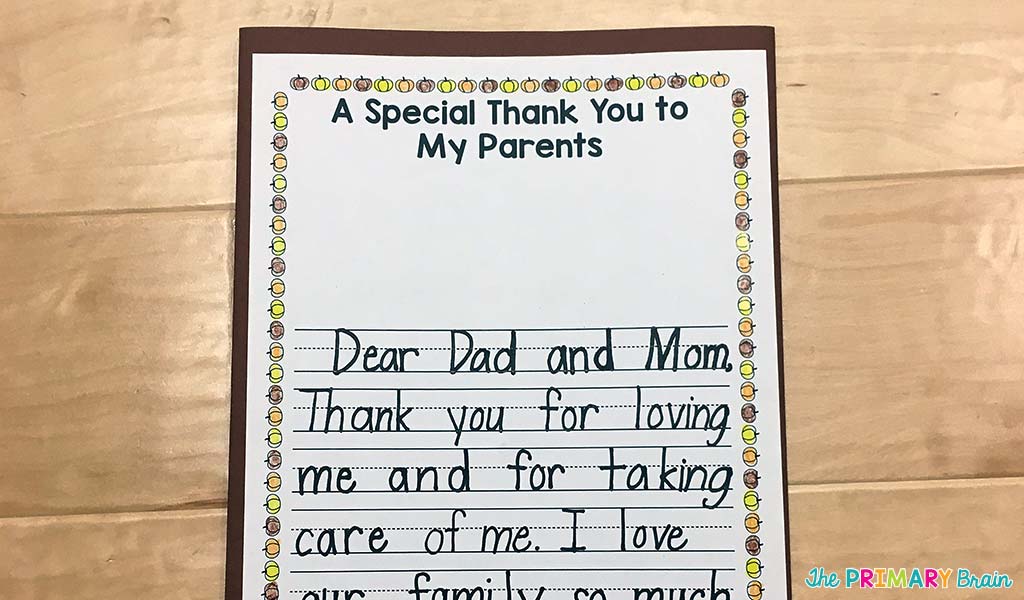 A Special Thank You to
My Parents
Dear Dad and Mom,
Thank you for loving
me and for taking
care of me. I love
our family so much
The PRIMARY Brain